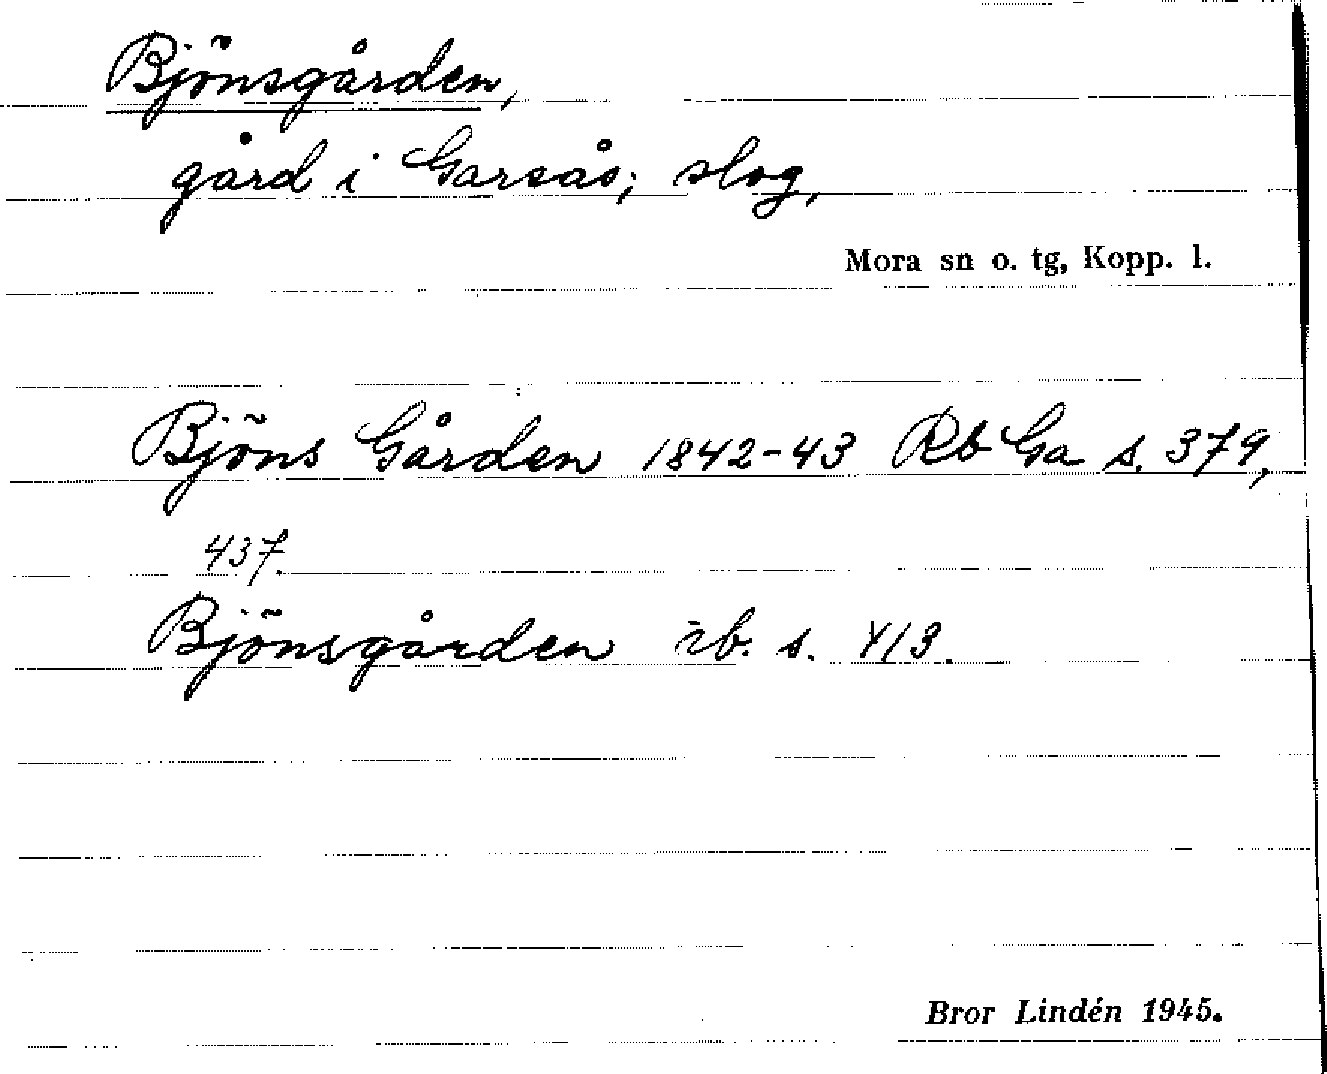 Bjönsgården,
gård i Garsås; slog,
Mora sn o. tg, Kopp. l.
Bjöns Gården 1842-43 Rb Ga s. 379,
437.
Bjönsgården ib. s. 413.
Bror Lindén 1945.